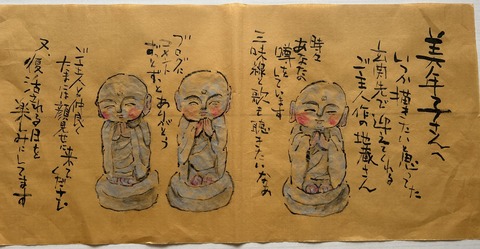 美年子さんへ
いつか描きたいと思ってた
玄関先で迎えてくれる
ご主人作の地蔵さん
時々
あなたの
噂をしています
三味線と歌も聴きたいなあ
ブログに
コメント
おとずと ありがとう
ご主人と仲良く
たまには顔見せに来て
くださいね
又、復活される日を
楽しみにしてます